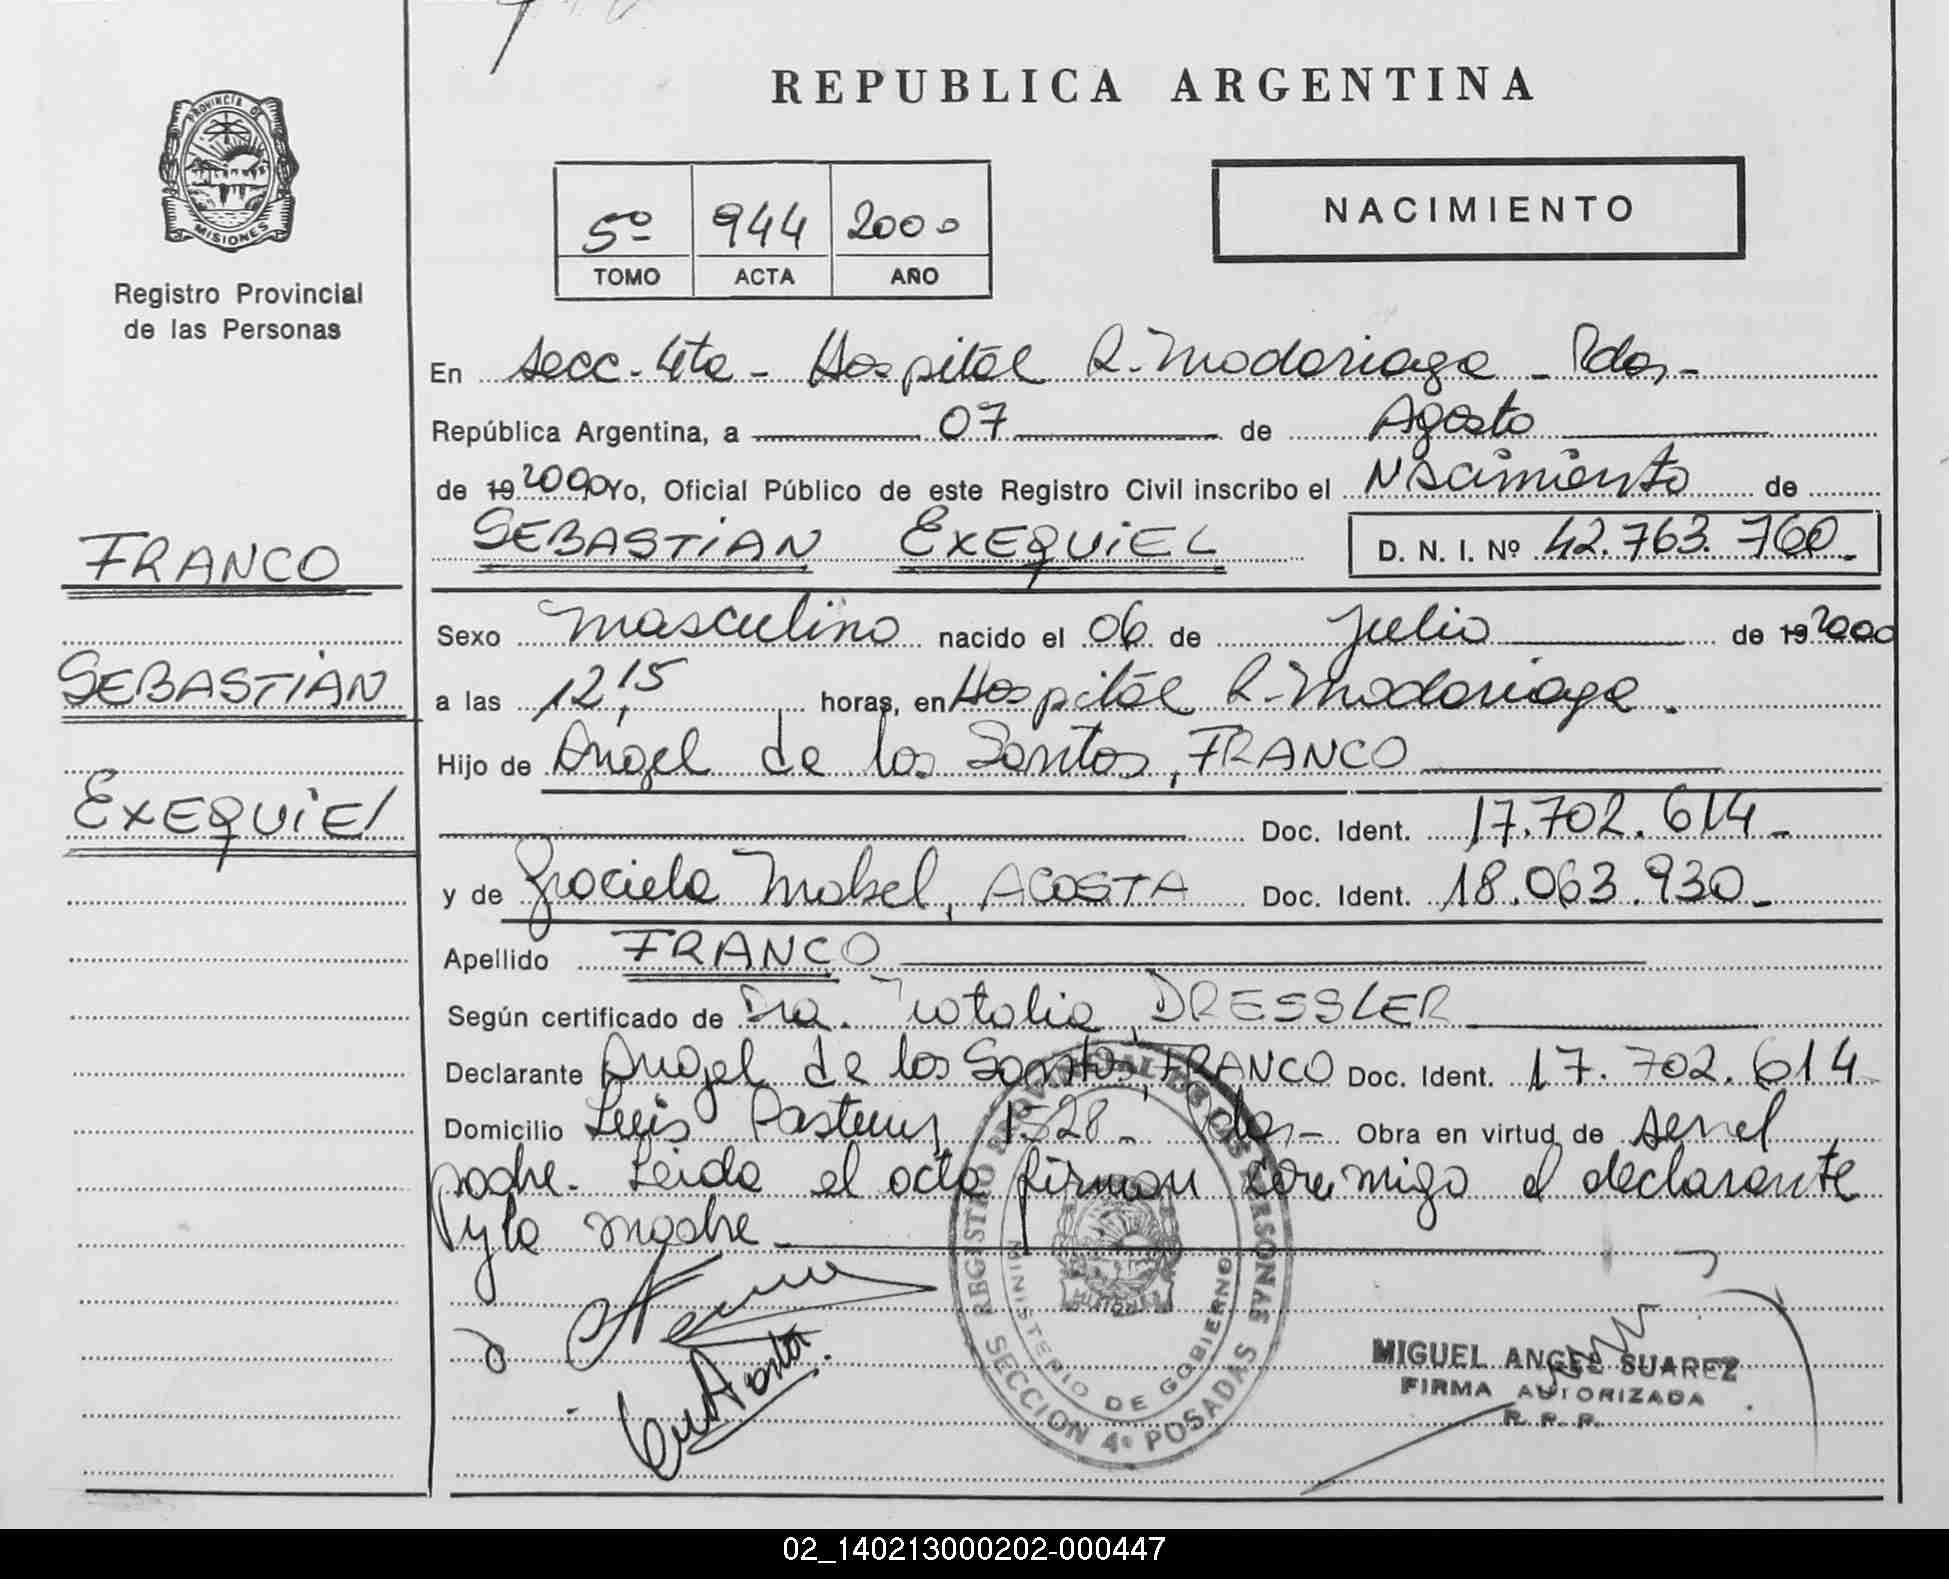 REPUBLICA ARGENTINA
PROVINCIA DE
MISIONES
Registro Provincial
de las Personas
5º 944 2000
TOMO ACTA AÑO
NACIMIENTO
En secc. 4ta - Hospital R. Madariaga - Pdas -
República Argentina, a 07 de Agosto
de 19 2000 Yo, Oficial Público de este Registro Civil inscribo el Nacimiento de
SEBASTIAN EXEQUIEL D. N. I. Nº 42.763.760.-
FRANCO
SEBASTIAN
EXEQUIEL
Sexo masculino nacido el 06 de Julio de 19 2000
a las 12,15 horas, en Hospital R. Madariaga.
Hijo de Angel de los Santos, FRANCO
Doc. Ident. 17.702.614 -
y de Graciela Mabel, ACOSTA Doc. Ident. 18.063.930 -
Apellido FRANCO
Según certificado de Dra. Natalia, DRESSLER
Declarante Angel de los Santos, FRANCO Doc. Ident. 17.702.614
Domicilio Luis Pasteur 1528 - Pdas - Obra en virtud de ser el
padre. Leida el acta firman conmigo el declarante
y la madre
REGISTRO PROVINCIAL DE LAS PERSONAS
MINISTERIO DE GOBIERNO
SECCION 4º POSADAS
MIGUEL ANGEL SUAREZ
FIRMA AUTORIZADA
R. P. P.
02_140213000202-000447